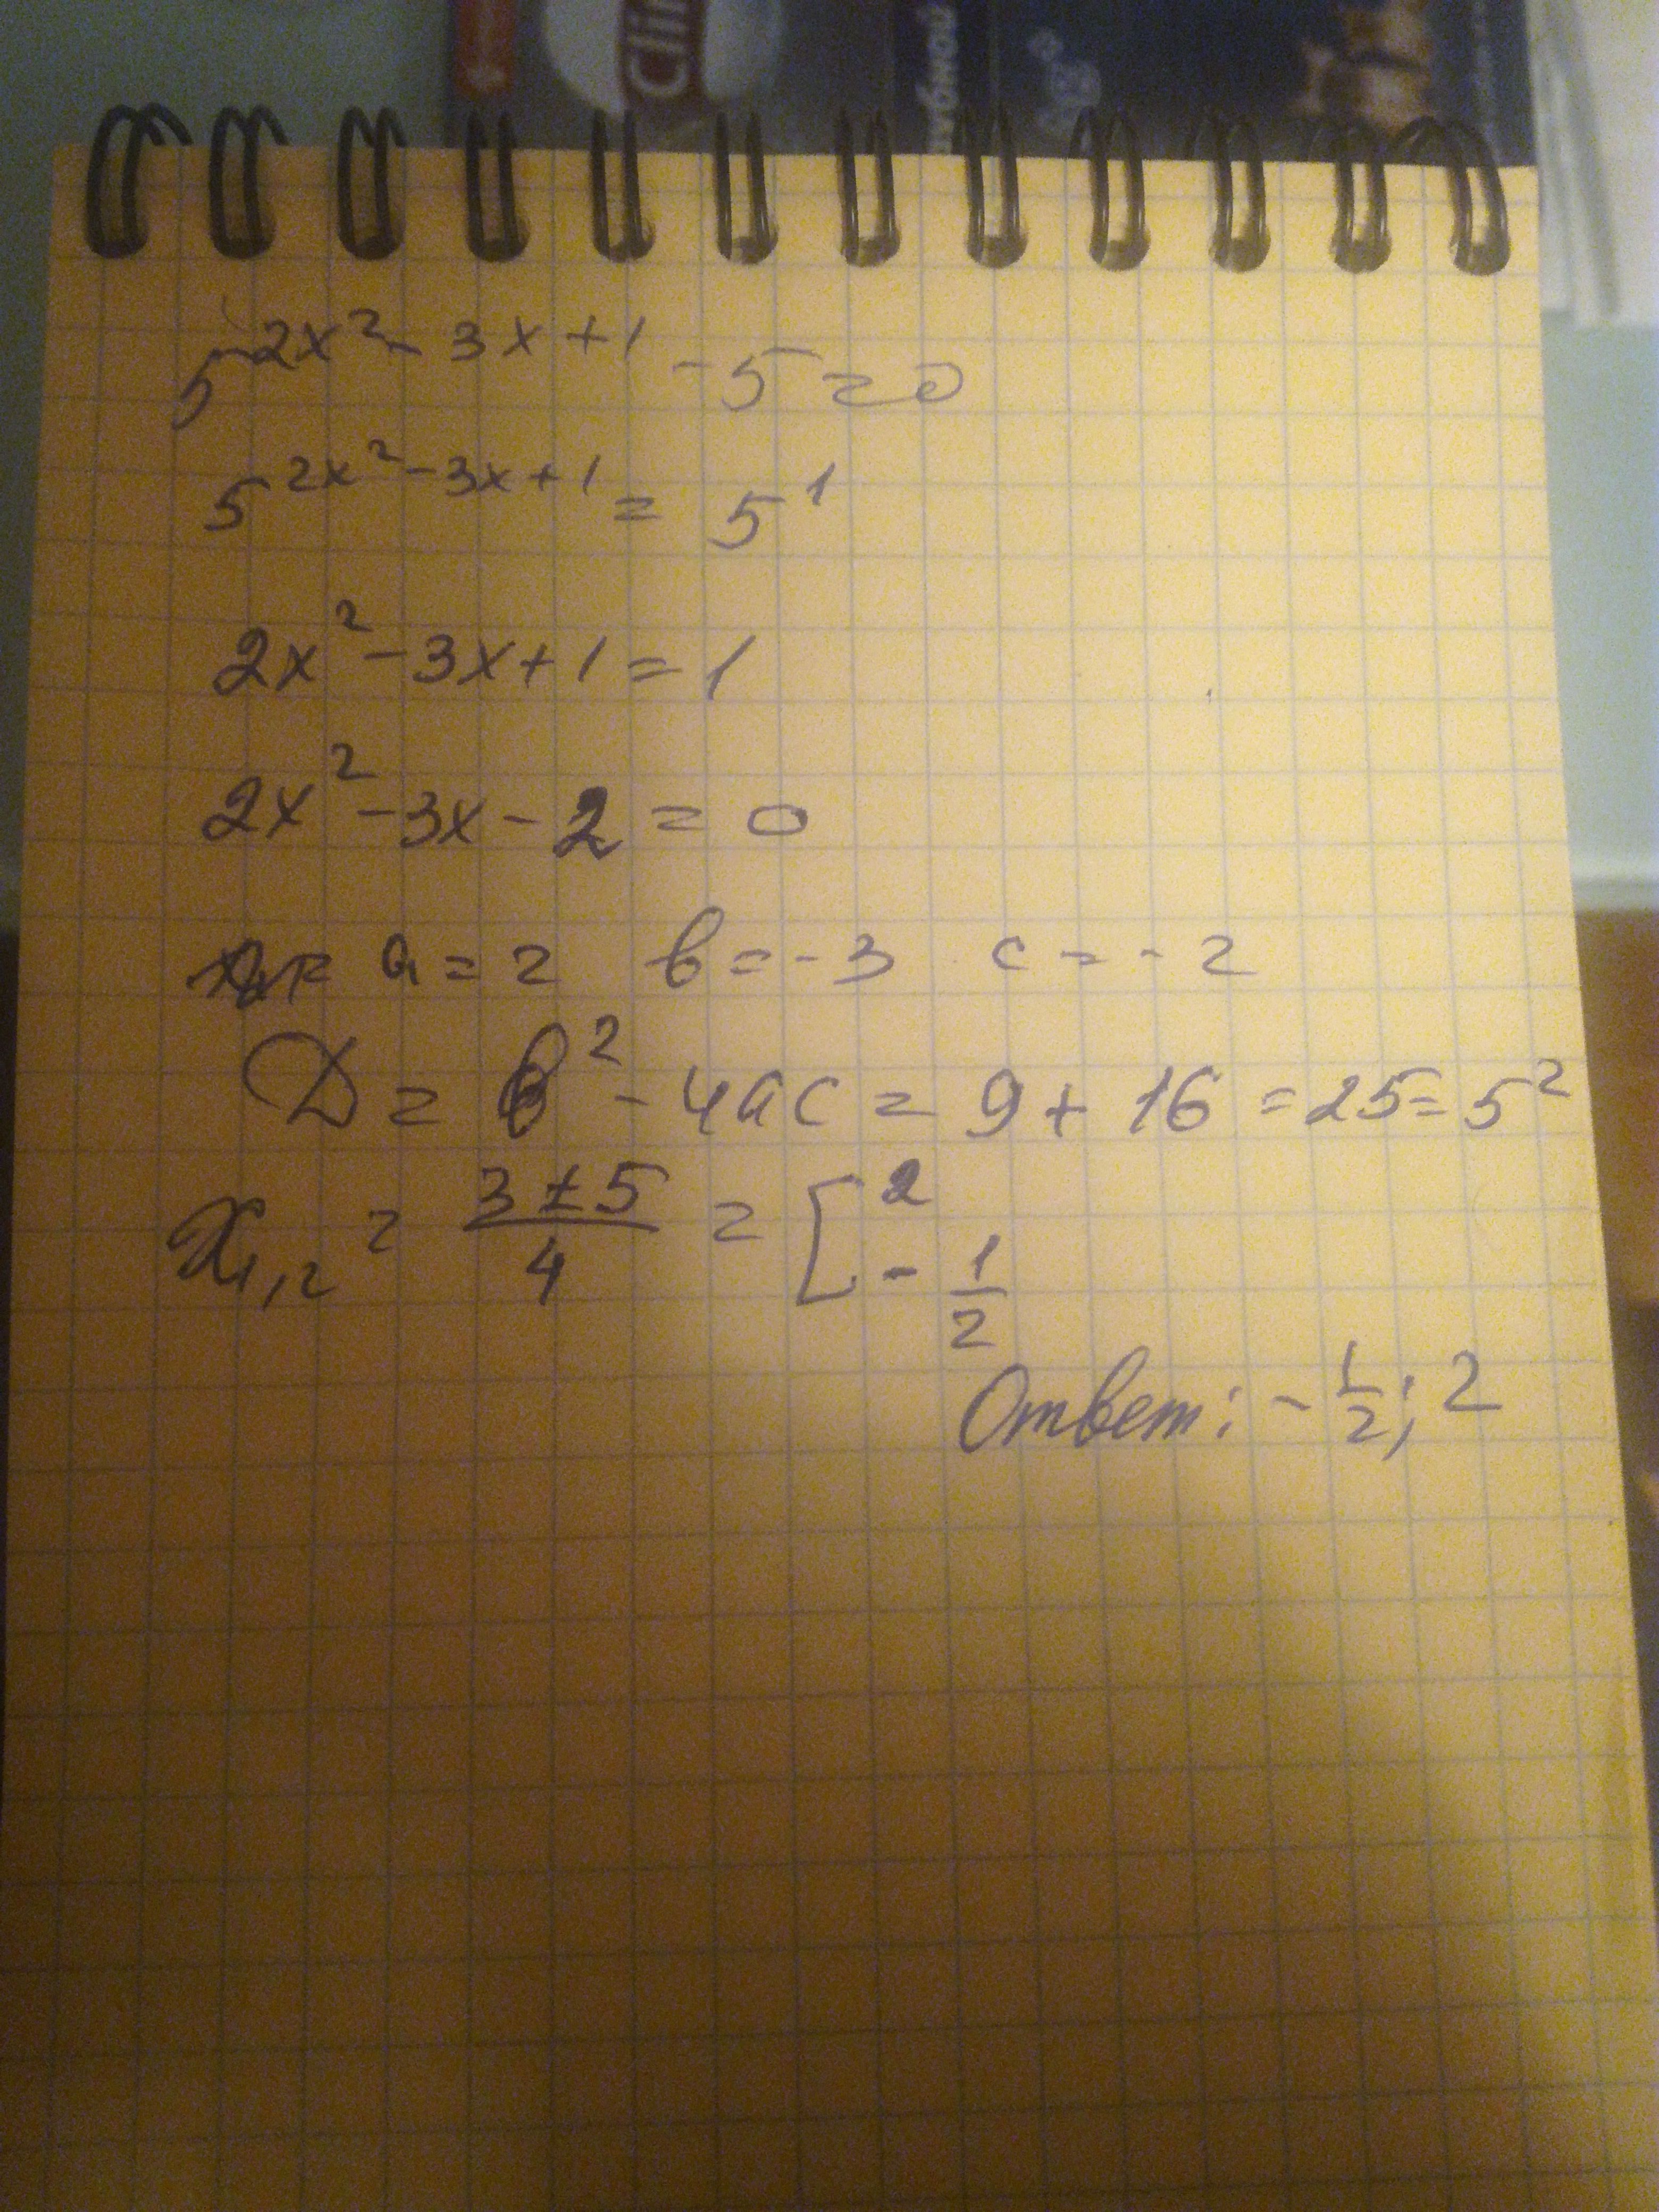 Clin
зубной
5^{2x^2-3x+1} - 5 = 0
5^{2x^2-3x+1} = 5^1
2x^2 - 3x + 1 = 1
2x^2 - 3x - 2 = 0
a = 2 b = -3 c = -2
D = b^2 - 4ac = 9 + 16 = 25 = 5^2
x_{1,2} = \frac{3 ± 5}{4} = [ 2
- \frac{1}{2}
Ответ: - \frac{1}{2}; 2